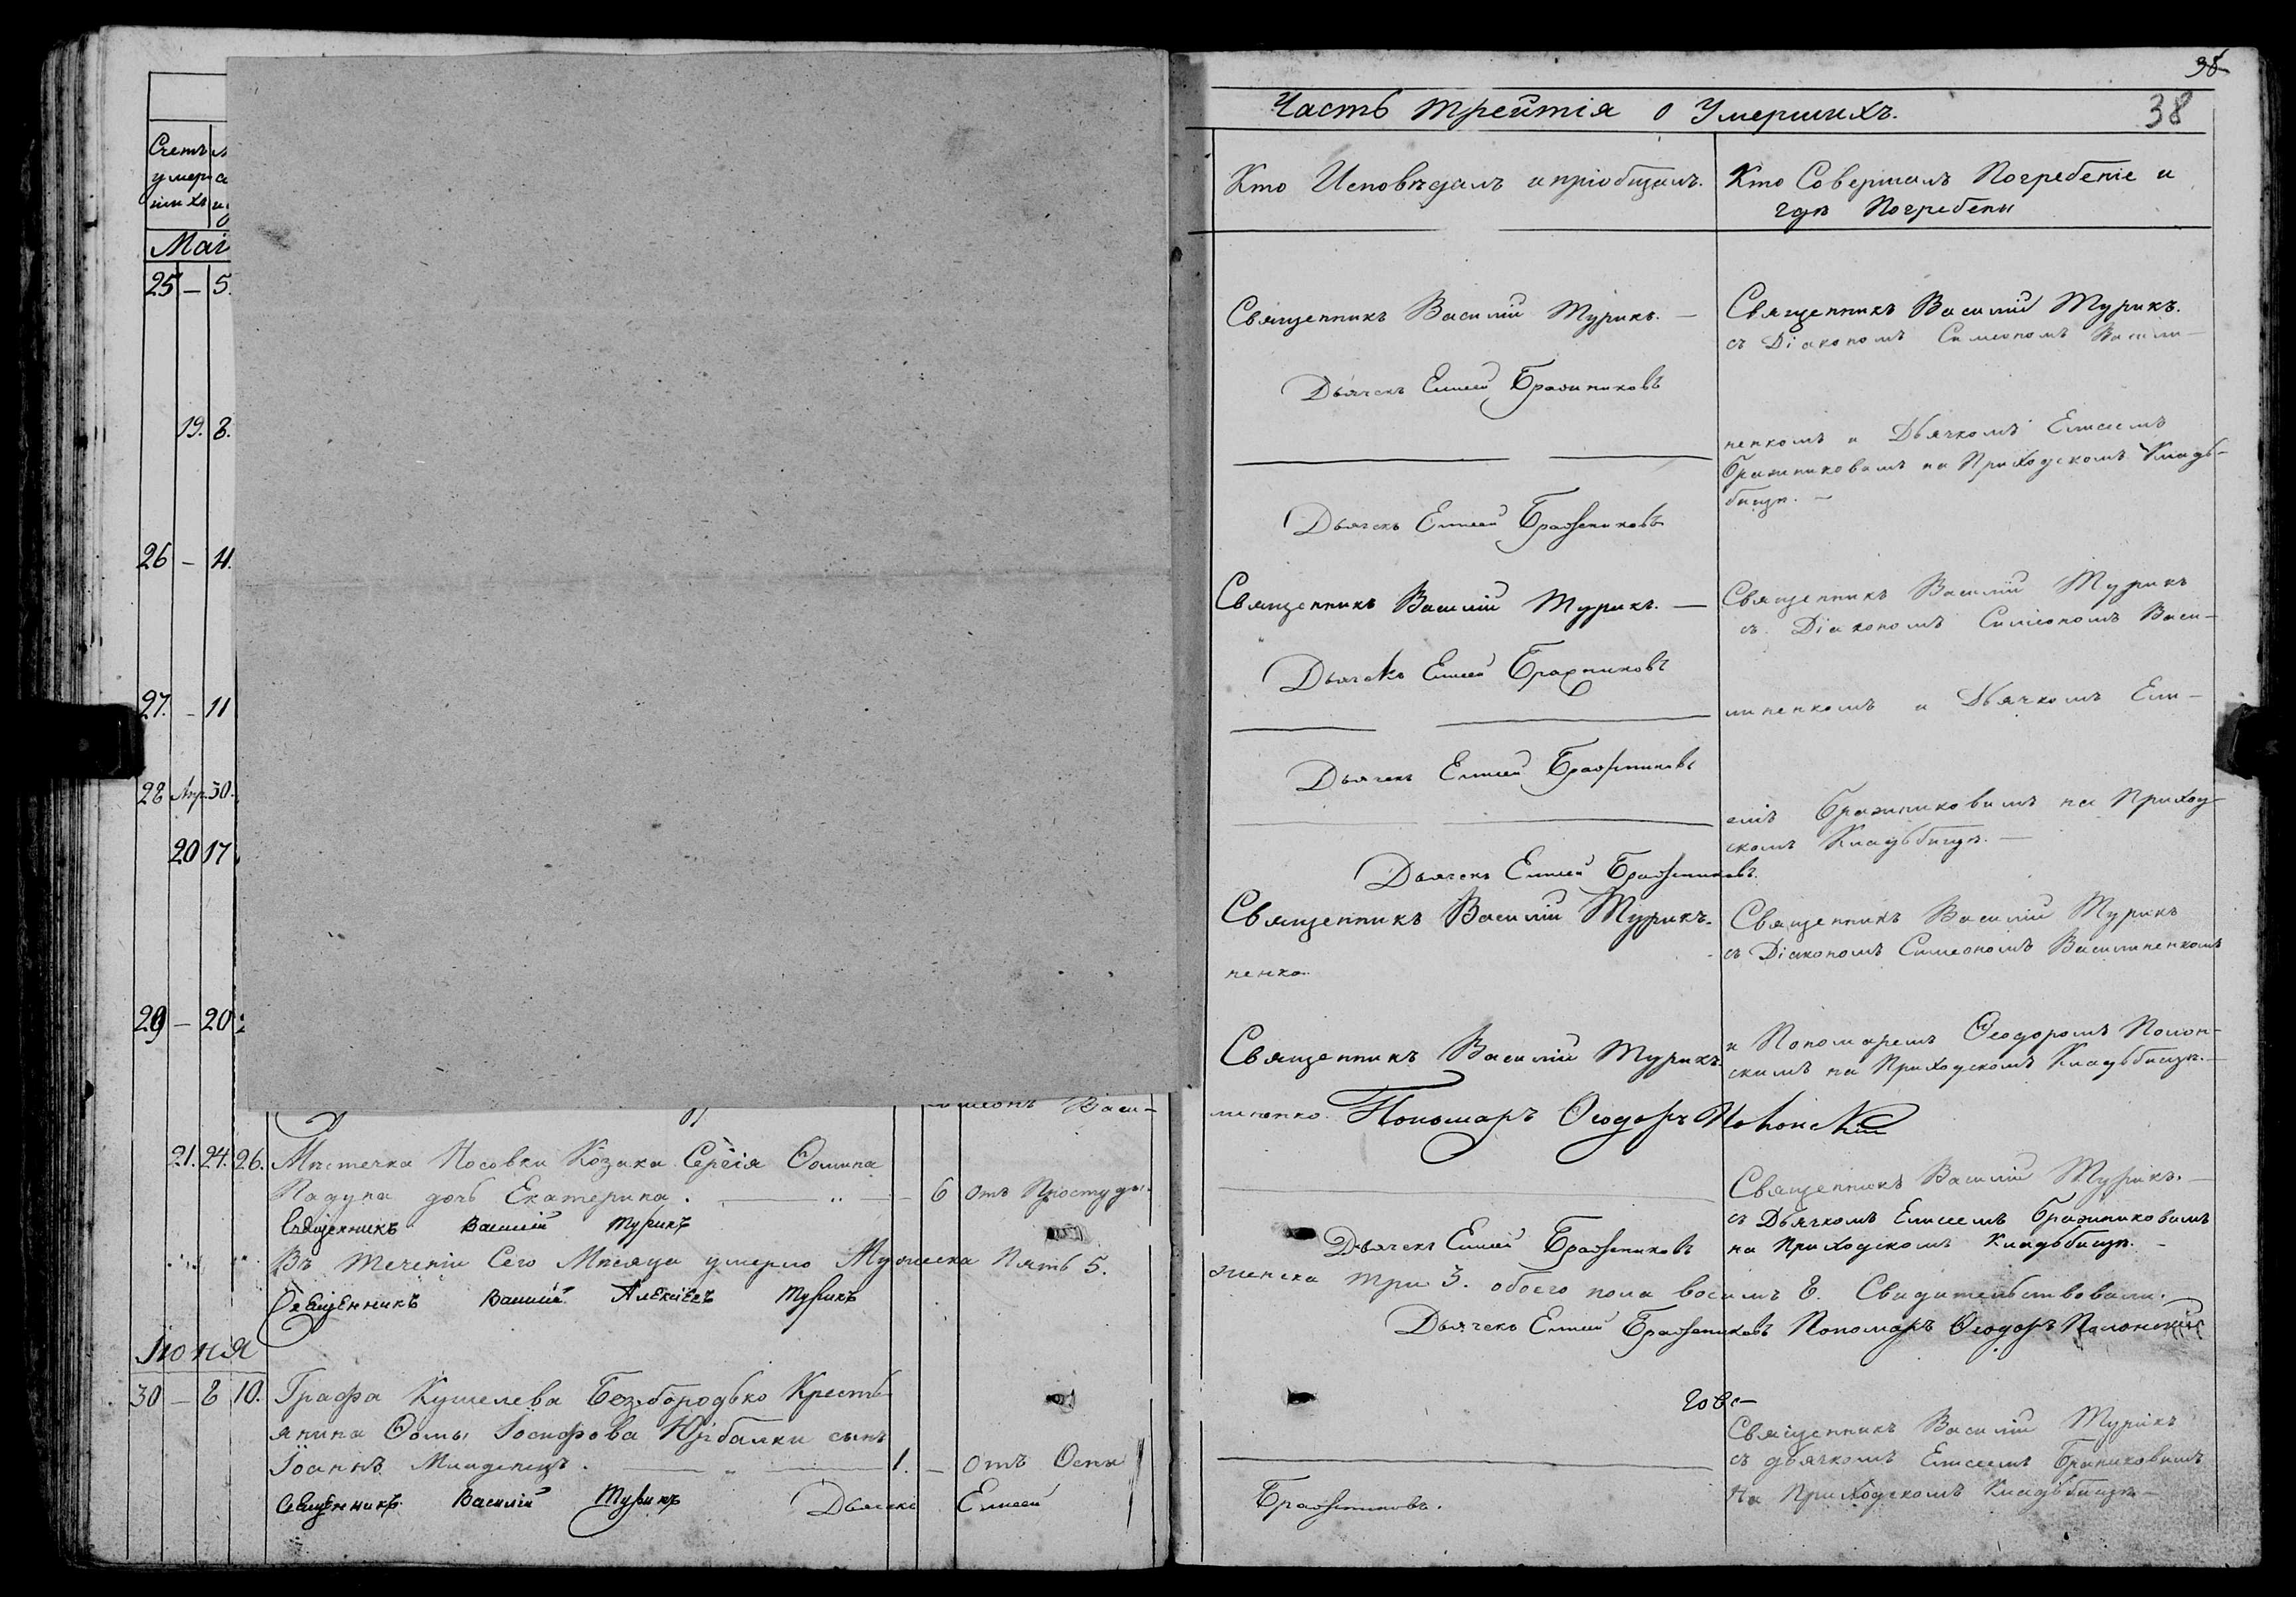 Счетъ
умер
шихъ
Маі
25 — 5.
19. 8.
26 — 11.
27. — 11
28 Апр. 30.
20 17
29 — 20
Васи-
21. 24. 26. Мѣстечка Носовки Козака Сергія Ѳомина
Падуна дочь Екатерина. — 6 отъ Простуды.
Священникъ Василій Турикъ
Въ теченіи Сего Мѣсяца умерло Мужеска Пять 5.
Священникъ Василій Алексіевъ Турикъ
Іюня
30 — 8 10. Графа Кушелева Безбородько Кресть-
янина Ѳомы Іосифова сынъ
Іоаннъ Младенецъ. — 1. — отъ Оспы
Священникъ Василій Турикъ Дьячекъ Елисей
38
Часть третія о Умершихъ.
38
Кто Исповѣдалъ и пріобщалъ.
Кто Совершалъ Погребеніе и
гдѣ Погребены
Священникъ Василій Турикъ. —
Дьячекъ Елисей Бражниковъ
Дьячекъ Елисей Бражниковъ
Священникъ Василій Турикъ. —
Дьячекъ Елисей Бражниковъ
Дьячекъ Елисей Бражниковъ
Дьячекъ Елисей Бражниковъ.
Священникъ Василій Турикъ.
ненко.
Священникъ Василій Турикъ.
линенко. Пономарь Ѳеодоръ Полонскій
Дьячекъ Елисей Бражниковъ
женска три 3. обоего пола восемь 8. Свидительствовали.
Дьячекъ Елисей Бражниковъ Пономарь Ѳеодоръ Полонскій
Бражниковъ.
Священникъ Василій Турикъ.
съ Діакономъ Симеономъ Васили-
ненкомъ и Дьячкомъ Елисеемъ
Бражниковымъ на Приходскомъ Кладь-
бищѣ. —
Священникъ Василій Турикъ
съ Діакономъ Симеономъ Васи-
линенкомъ и Дьячкомъ Ели-
емъ Бражниковымъ на Приход-
скомъ Кладьбищѣ. —
Священникъ Василій Турикъ
съ Діакономъ Симеономъ Василиненкомъ
и Пономаремъ Ѳеодоромъ Полон-
скимъ на Приходскомъ Кладьбищѣ. —
Священникъ Василій Турикъ. —
съ Дьячкомъ Елисеемъ Бражниковымъ
на Приходскомъ Кладьбищѣ. —
Священникъ Василій Турикъ
съ дьячкомъ Елисеемъ Бражниковымъ
На Приходскомъ Кладьбищѣ —